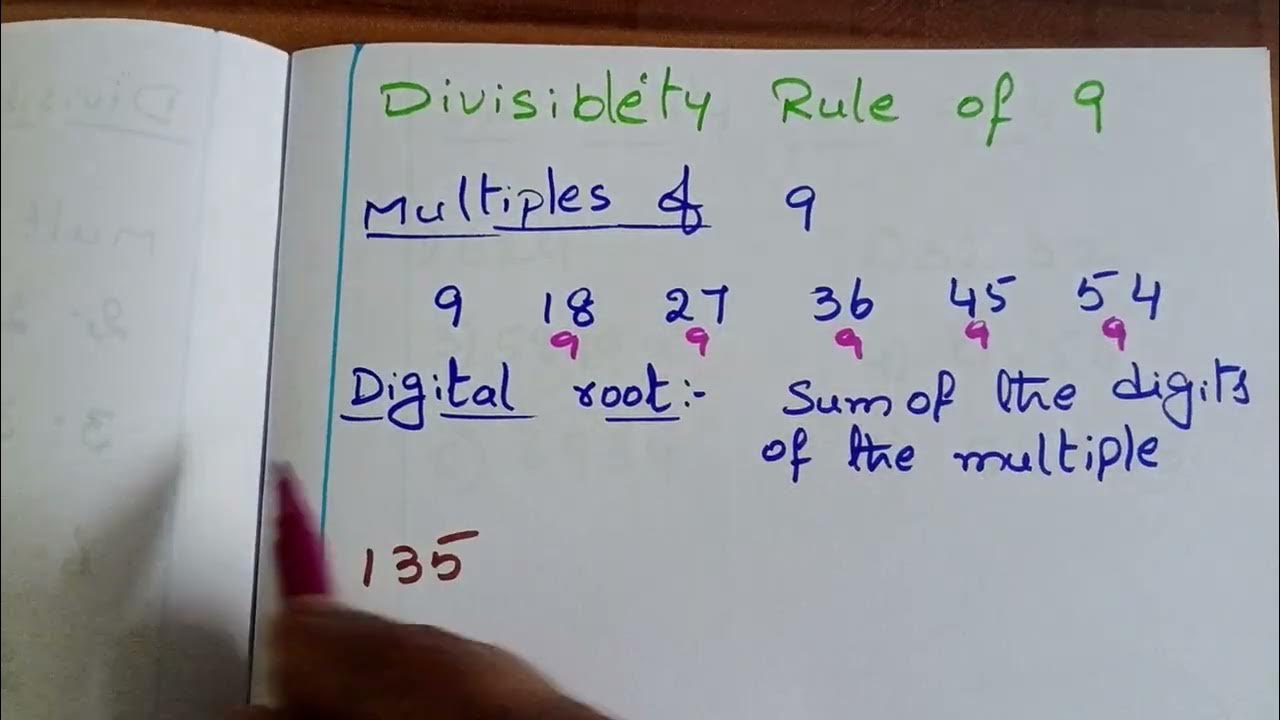 Divisiblety Rule of 9
Multiples of 9
9 18 27 36 45 54
9 9 9 9 9
Digital root:- Sum of the digits
of the multiple
135